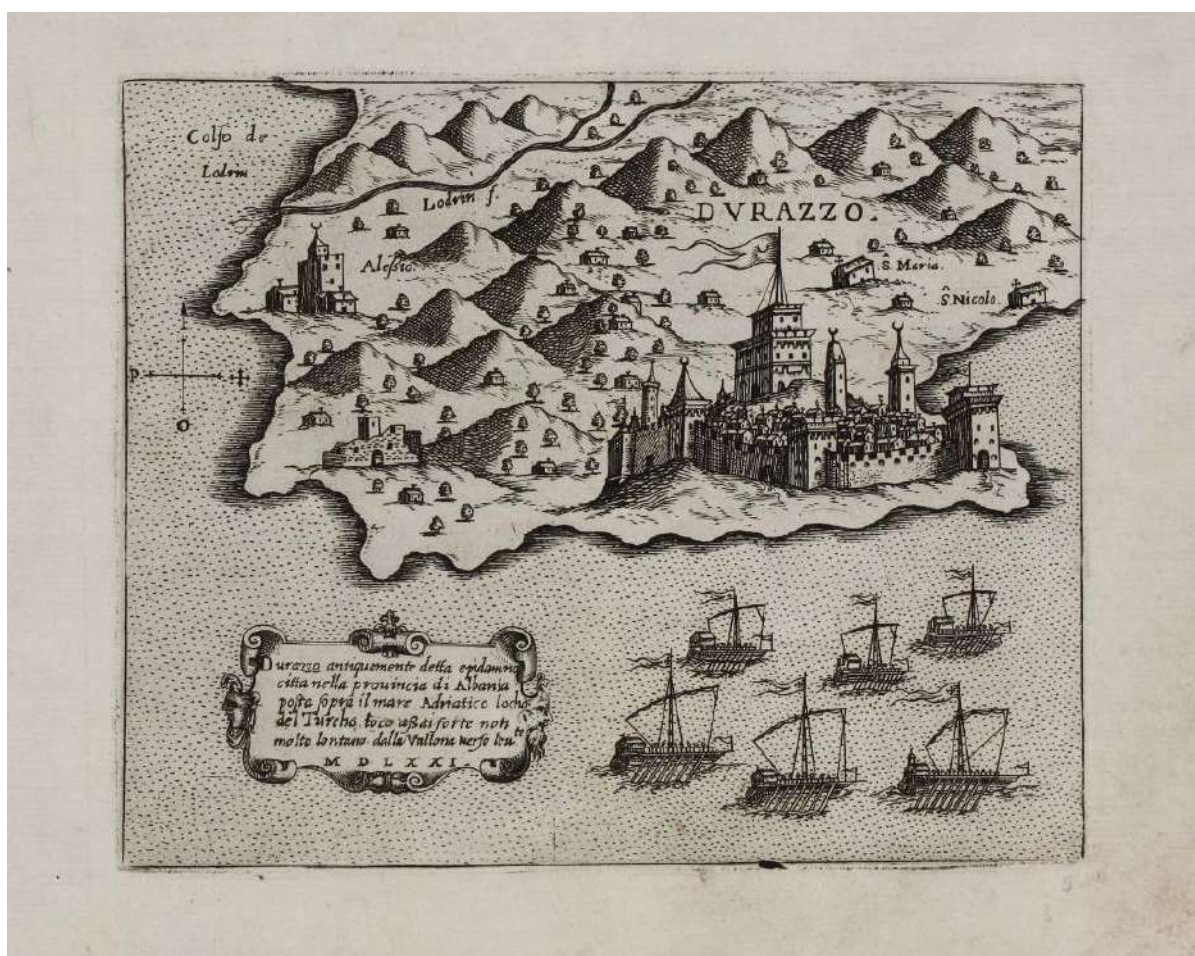 Colfo de
Lodrin
Lodrin f.
DVRAZZO.
Alessio.
S. Maria.
S. Nicolo.
P
O
Durazzo antiquemente detta epidamno
citta nella prouincia di Albania
posta sopra il mare Adriatico locho
del Turcho. loco assai forte non
molto lontano dalla Vallona uerso leu.te
M D L X X I.
5